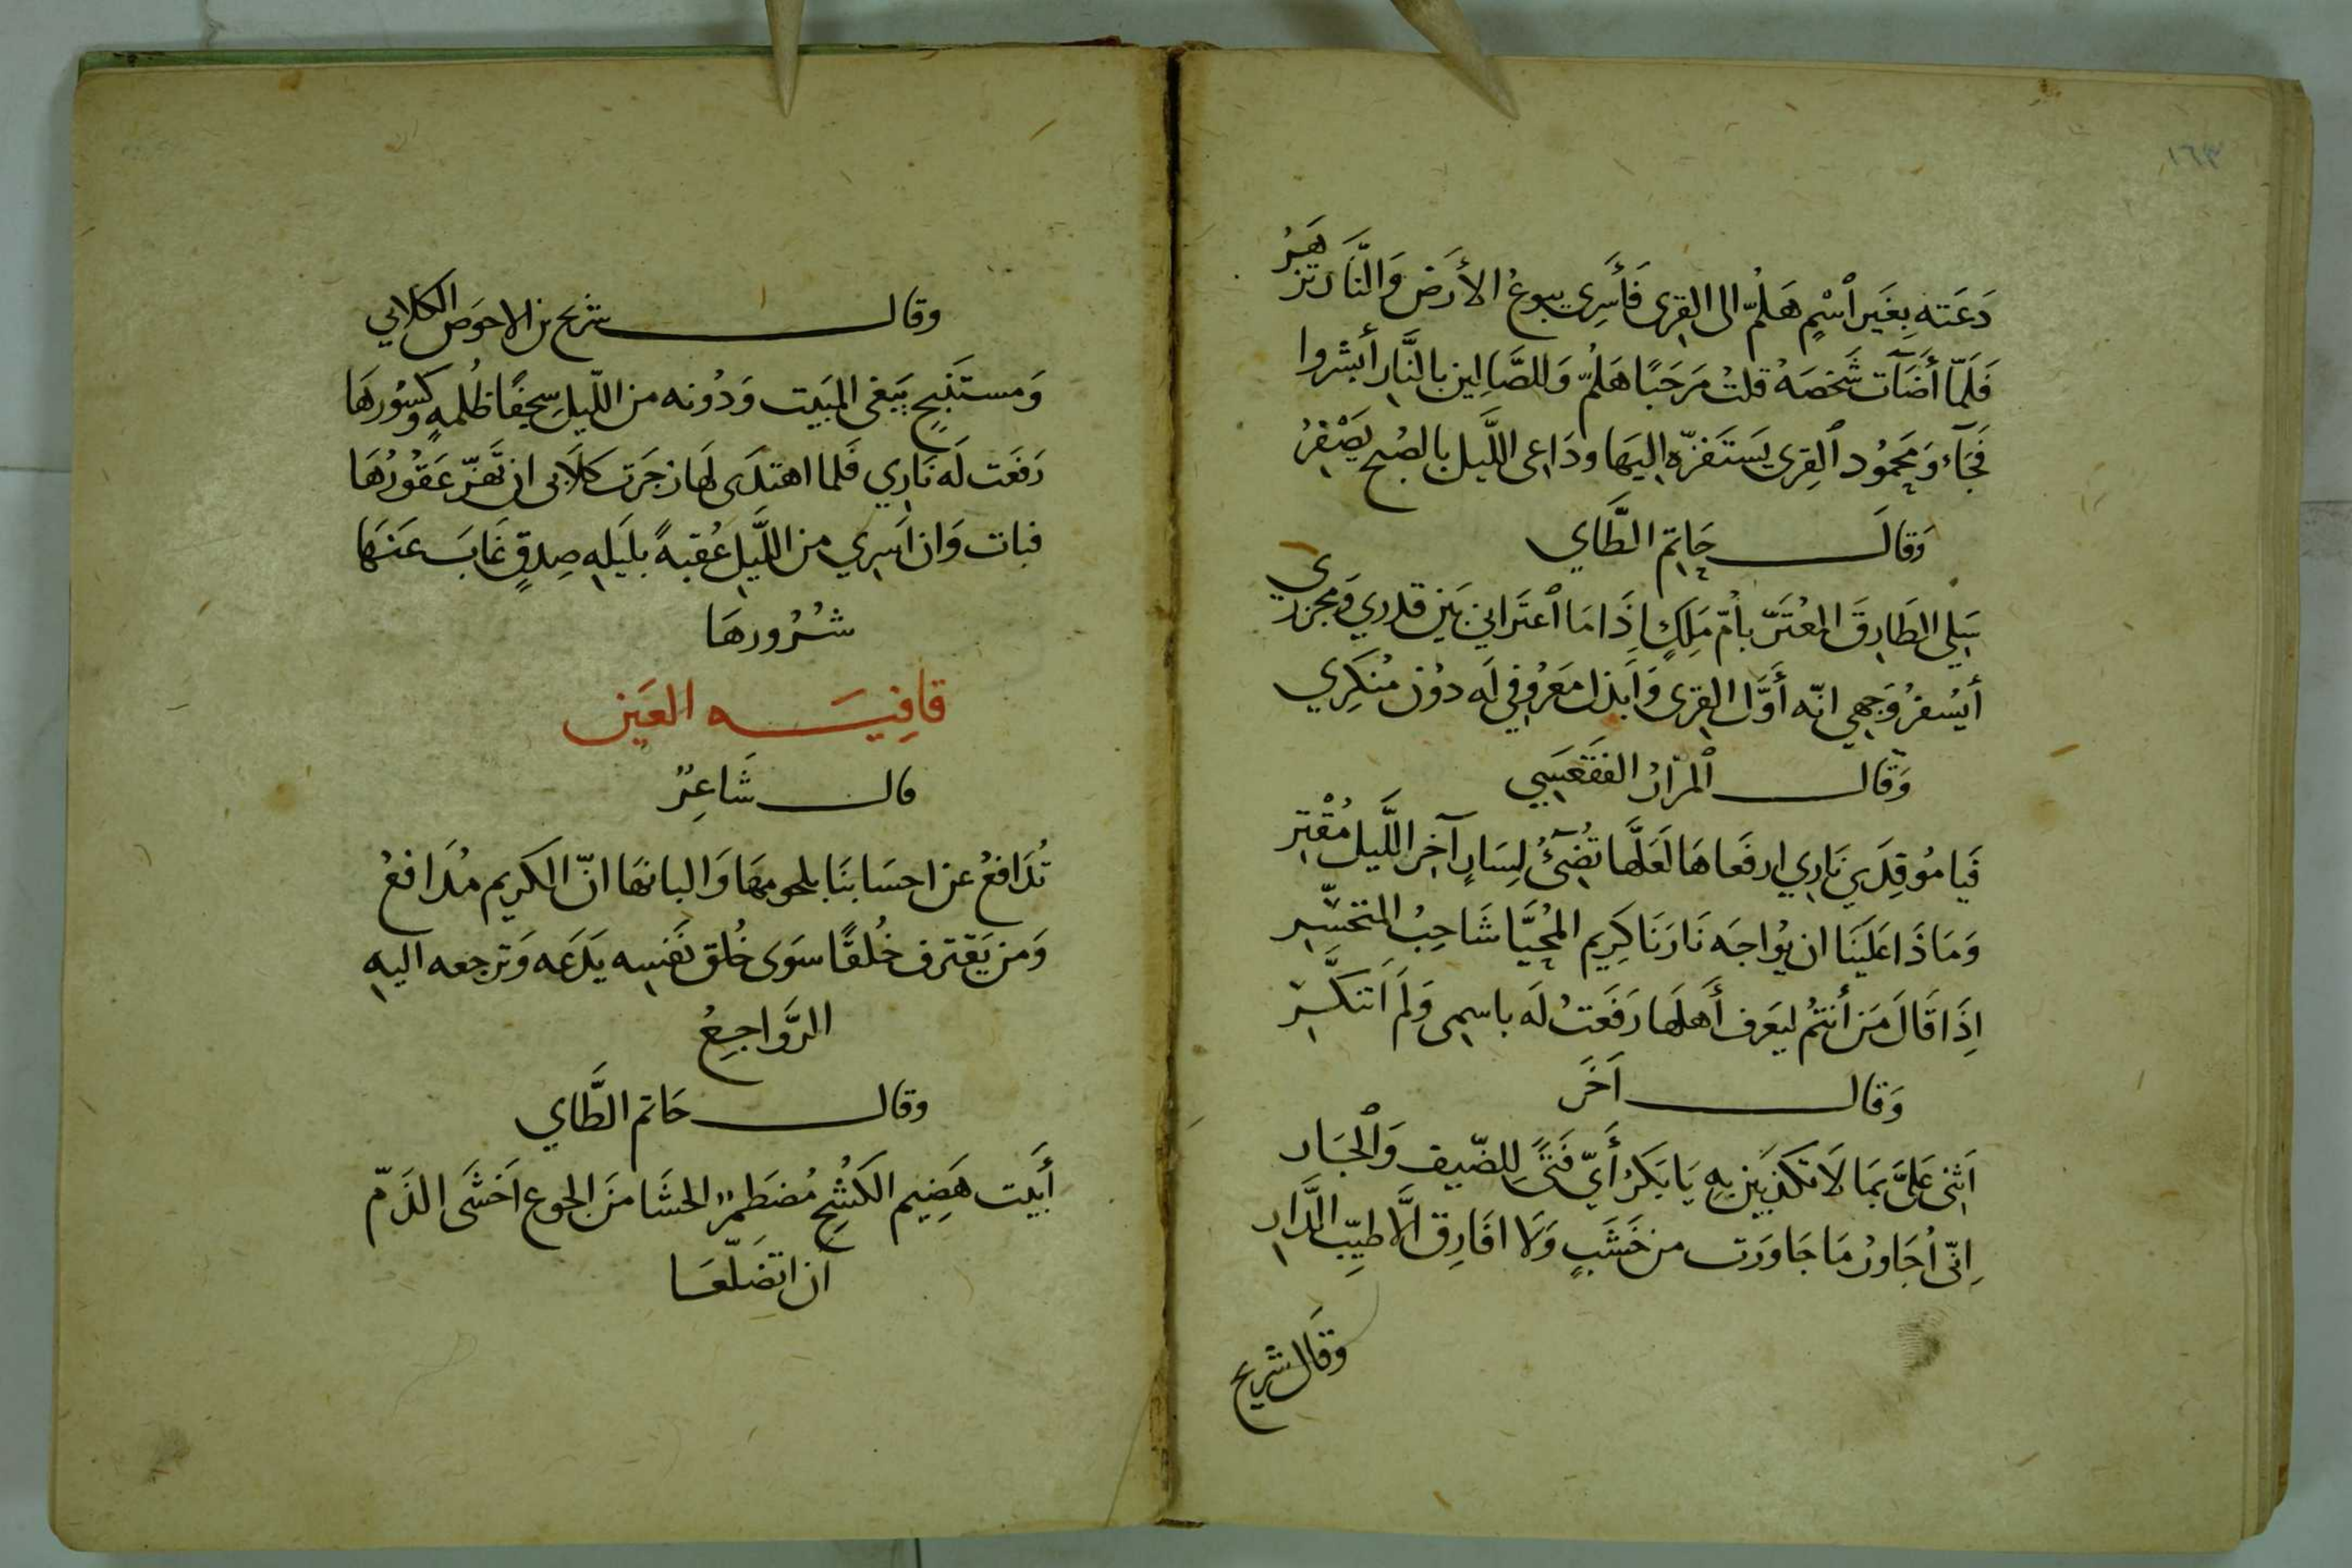 ١٦٣
دَعَته بِغَيرِ ٱسْمٍ هَلُمّ الى القِرى فَأَسرِى يبوعُ الأَرضَ وَالنَّار تزهَرُ
فَلَمّا أَضَآت شَخصَهُ قلتُ مَرحَبًا هَلُمّ وَللصَّالِين بالنَّارِ أَبشروا
فَجَآءَ وَمَحمُود ٱلقِرى يَستَفزّه اليَها ودَاعى اللَّيل بالصُبح يَصْفِرُ
وَقالَ حَاتِم الطَّاي
سَلِى الطَارِقَ المعُتَرّ يا أُمّ مَلِكٍ إِذَا مَا ٱعتَرانِي بَين قدري وَمَجزري
أَيُسفرُ وَجهِي انّه أَوَّل القِرى وَأَبذل مَعرُوفي لَه دوُن مُنكِري
وَقال ٱلمرّارُ الفَقعَسِي
فَيا مُوقِدَي نَارِي ارفَعاها لَعَلَّها تُضِىٓءُ لِسَارٍ آخرَ اللَّيل مُقْتِرِ
وَمَاذَا عَلَينَا ان يُواجِه نَارَنَا كَرِيم المُحيَّا شَاحِبُ المتحَسَّرِ
اِذَا قَالَ مَن أَنتمُ ليَعرف أَهلَها رَفَعتُ لَه باسمِى وَلَم اَتنَكَّرِ
وَقال آخَر
اَثنِى عَلَىَّ بمَا لَا تكذبِين بِهِ يَا بَكرُ أَيّ فَتًى لِلضّيف وَٱلجَار
اِنّى اُجَاورُ مَا جَاوَرت من خَشَبٍ وَلَا افَارِق اِلَّا طيِّب الدَّارِ
وقَال شريح
وقال شريح بن الاحوَص الكلابي
وَمستَنبِحٍ يَبغى المَبيت وَدُونه من اللّيلِ سِجفًا ظُلمهٍ وكسُورهَا
رَفَعت لَه نَارِي فَلما اهتدَى لَها زجَرت كلَابى ان تَهرّ عَقُورُهَا
فبات وَان اَسرِي من اللَّيلِ عُقبهً بلَيلهِ صِدقٍ غَابَ عَنهَا
شُرُورهَا
قافِيَه العَين
قال شَاعِرٌ
تُدَافعُ عن احسَابنَا بلحومهَا وَالبانهَا انّ الكَريم مُدَافعُ
وَمن يَقترف خُلقًا سوَى خُلق نَفسِه يَدَعه وَترجعه اليهِ
الرَّواجِعُ
وقال حَاتم الطَّاي
أَبَيت هَضِيم الكَشْحِ مُضطَمر الحشَا مِنَ الجوع اَخشَى الذَمّ
ان اتضَلَّعَا